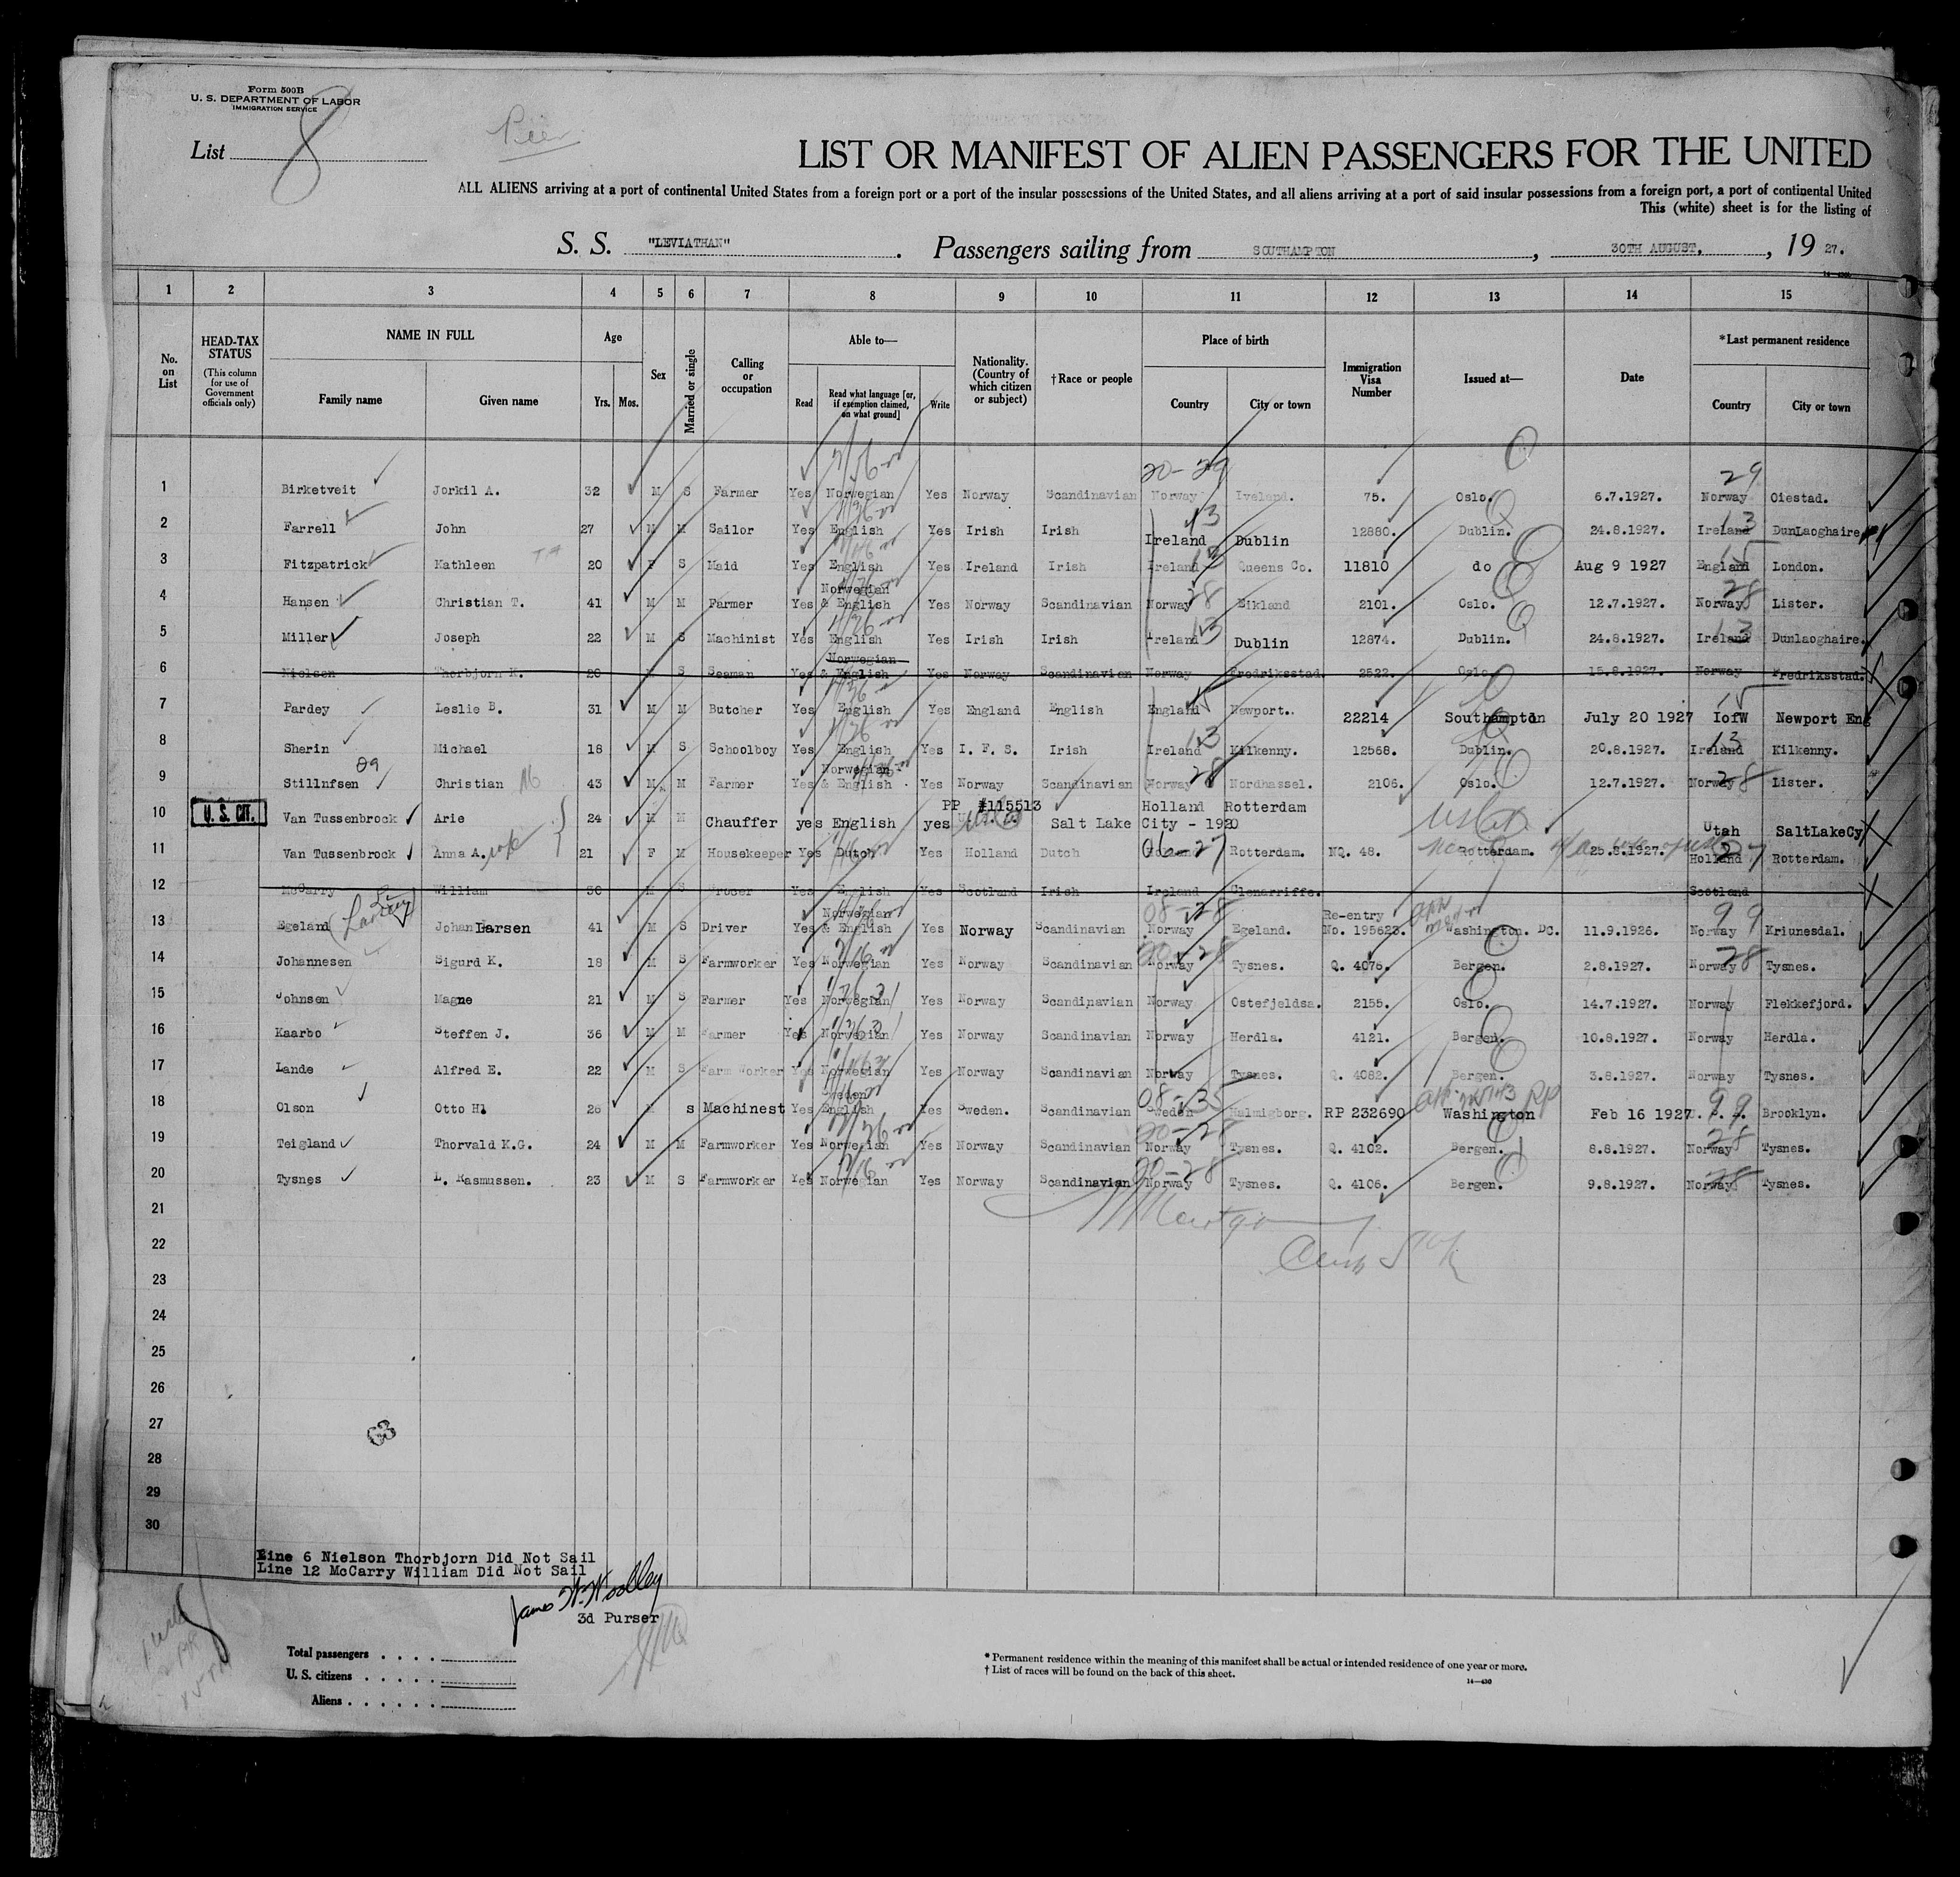 Form 500B
U. S. DEPARTMENT OF LABOR
IMMIGRATION SERVICE
List 8
Pier
LIST OR MANIFEST OF ALIEN PASSENGERS FOR THE UNITED
ALL ALIENS arriving at a port of continental United States from a foreign port or a port of the insular possessions of the United States, and all aliens arriving at a port of said insular possessions from a foreign port, a port of continental United
This (white) sheet is for the listing of
S. S. "LEVIATHAN". Passengers sailing from SOUTHAMPTON, 30TH AUGUST, 19 27.
1 2 3 4 5 6 7 8 9 10 11 12 13 14 15
No. on List
HEAD-TAX STATUS (This column for use of Government officials only)
NAME IN FULL Family name Given name
Age Yrs. Mos.
Sex
Married or single
Calling or occupation
Able to— Read Read what language [or, if exemption claimed, on what ground] Write
Nationality. (Country of which citizen or subject)
†Race or people
Place of birth Country City or town
Immigration Visa Number
Issued at—
Date
*Last permanent residence Country City or town
20-29 29
1 Birketveit Jorkil A. 32 M S Farmer Yes Norwegian Yes Norway Scandinavian Norway Iveland. 75. Oslo. 6.7.1927. Norway Oiestad.
2 Farrell John 27 M M Sailor Yes English Yes Irish Irish Ireland Dublin 12880. Dublin. 24.8.1927. Ireland DunLaoghaire
3 Fitzpatrick Kathleen 20 F S Maid Yes English Yes Ireland Irish Ireland Queens Co. 11810 do Aug 9 1927 England London.
4 Hansen Christian T. 41 M M Farmer Yes Norwegian & English Yes Norway Scandinavian Norway Eikland 2101. Oslo. 12.7.1927. Norway Lister.
5 Miller Joseph 22 M S Machinist Yes English Yes Irish Irish Ireland Dublin 12874. Dublin. 24.8.1927. Ireland Dunlaoghaire.
6 Nielsen Thorbjorn K. 20 M S Seaman Yes Norwegian & English Yes Norway Scandinavian Norway Fredriksstad. 2522. Oslo. 15.8.1927. Norway Fredriksstad.
7 Pardey Leslie B. 31 M M Butcher Yes English Yes England English England Newport. 22214 Southampton July 20 1927 IofW Newport Eng
8 Sherin Michael 18 M S Schoolboy Yes English Yes I. F. S. Irish Ireland Kilkenny. 12568. Dublin. 20.8.1927. Ireland Kilkenny.
9 Stillnfsen Christian 43 M M Farmer Yes Norwegian & English Yes Norway Scandinavian Norway Nordhassel. 2106. Oslo. 12.7.1927. Norway Lister.
PP #115513 Holland Rotterdam
10 U. S. CIT. Van Tussenbrock Arie 24 M M Chauffer yes English yes Salt Lake City - 1920 Utah SaltLakeCy
11 Van Tussenbrock Anna A. 21 F M Housekeeper Yes Dutch Yes Holland Dutch Rotterdam. NQ. 48. Rotterdam. 25.8.1927. Holland Rotterdam.
12 McCarry William 30 M S Grocer Yes English Yes Scotland Irish Ireland Glenarriffe. Scotland
13 Egeland Johan Larsen 41 M S Driver Yes Norwegian & English Yes Norway Scandinavian Norway Egeland. Re-entry No. 195623. Washington. DC. 11.9.1926. Norway Kriunesdal.
14 Johannesen Sigurd K. 18 M S Farmworker Yes Norwegian Yes Norway Scandinavian Norway Tysnes. Q. 4075. Bergen. 2.8.1927. Norway Tysnes.
15 Johnsen Magne 21 M S Farmer Yes Norwegian Yes Norway Scandinavian Norway Ostefjeldsa. 2155. Oslo. 14.7.1927. Norway Flekkefjord.
16 Kaarbo Steffen J. 36 M M Farmer Yes Norwegian Yes Norway Scandinavian Norway Herdla. 4121. Bergen. 10.8.1927. Norway Herdla.
17 Lande Alfred E. 22 M S Farm Worker Yes Norwegian Yes Norway Scandinavian Norway Tysnes. Q. 4082. Bergen. 3.8.1927. Norway Tysnes.
18 Olson Otto H. 26 M s Machinest Yes Sweden English Yes Sweden. Scandinavian Sweden Halmigborg. RP 232690 Washington Feb 16 1927 Brooklyn.
19 Teigland Thorvald K.G. 24 M M Farmworker Yes Norwegian Yes Norway Scandinavian Norway Tysnes. Q. 4102. Bergen. 8.8.1927. Norway Tysnes.
20 Tysnes L. Rasmussen. 23 M S Farmworker Yes Norwegian Yes Norway Scandinavian Norway Tysnes. Q. 4106. Bergen. 9.8.1927. Norway Tysnes.
21
22
23
24
25
26
27
63
28
29
30
Line 6 Nielson Thorbjorn Did Not Sail
Line 12 McCarry William Did Not Sail
James W. Woolley
3d Purser
Total passengers
U. S. citizens
Aliens
* Permanent residence within the meaning of this manifest shall be actual or intended residence of one year or more.
† List of races will be found on the back of this sheet.
14—430